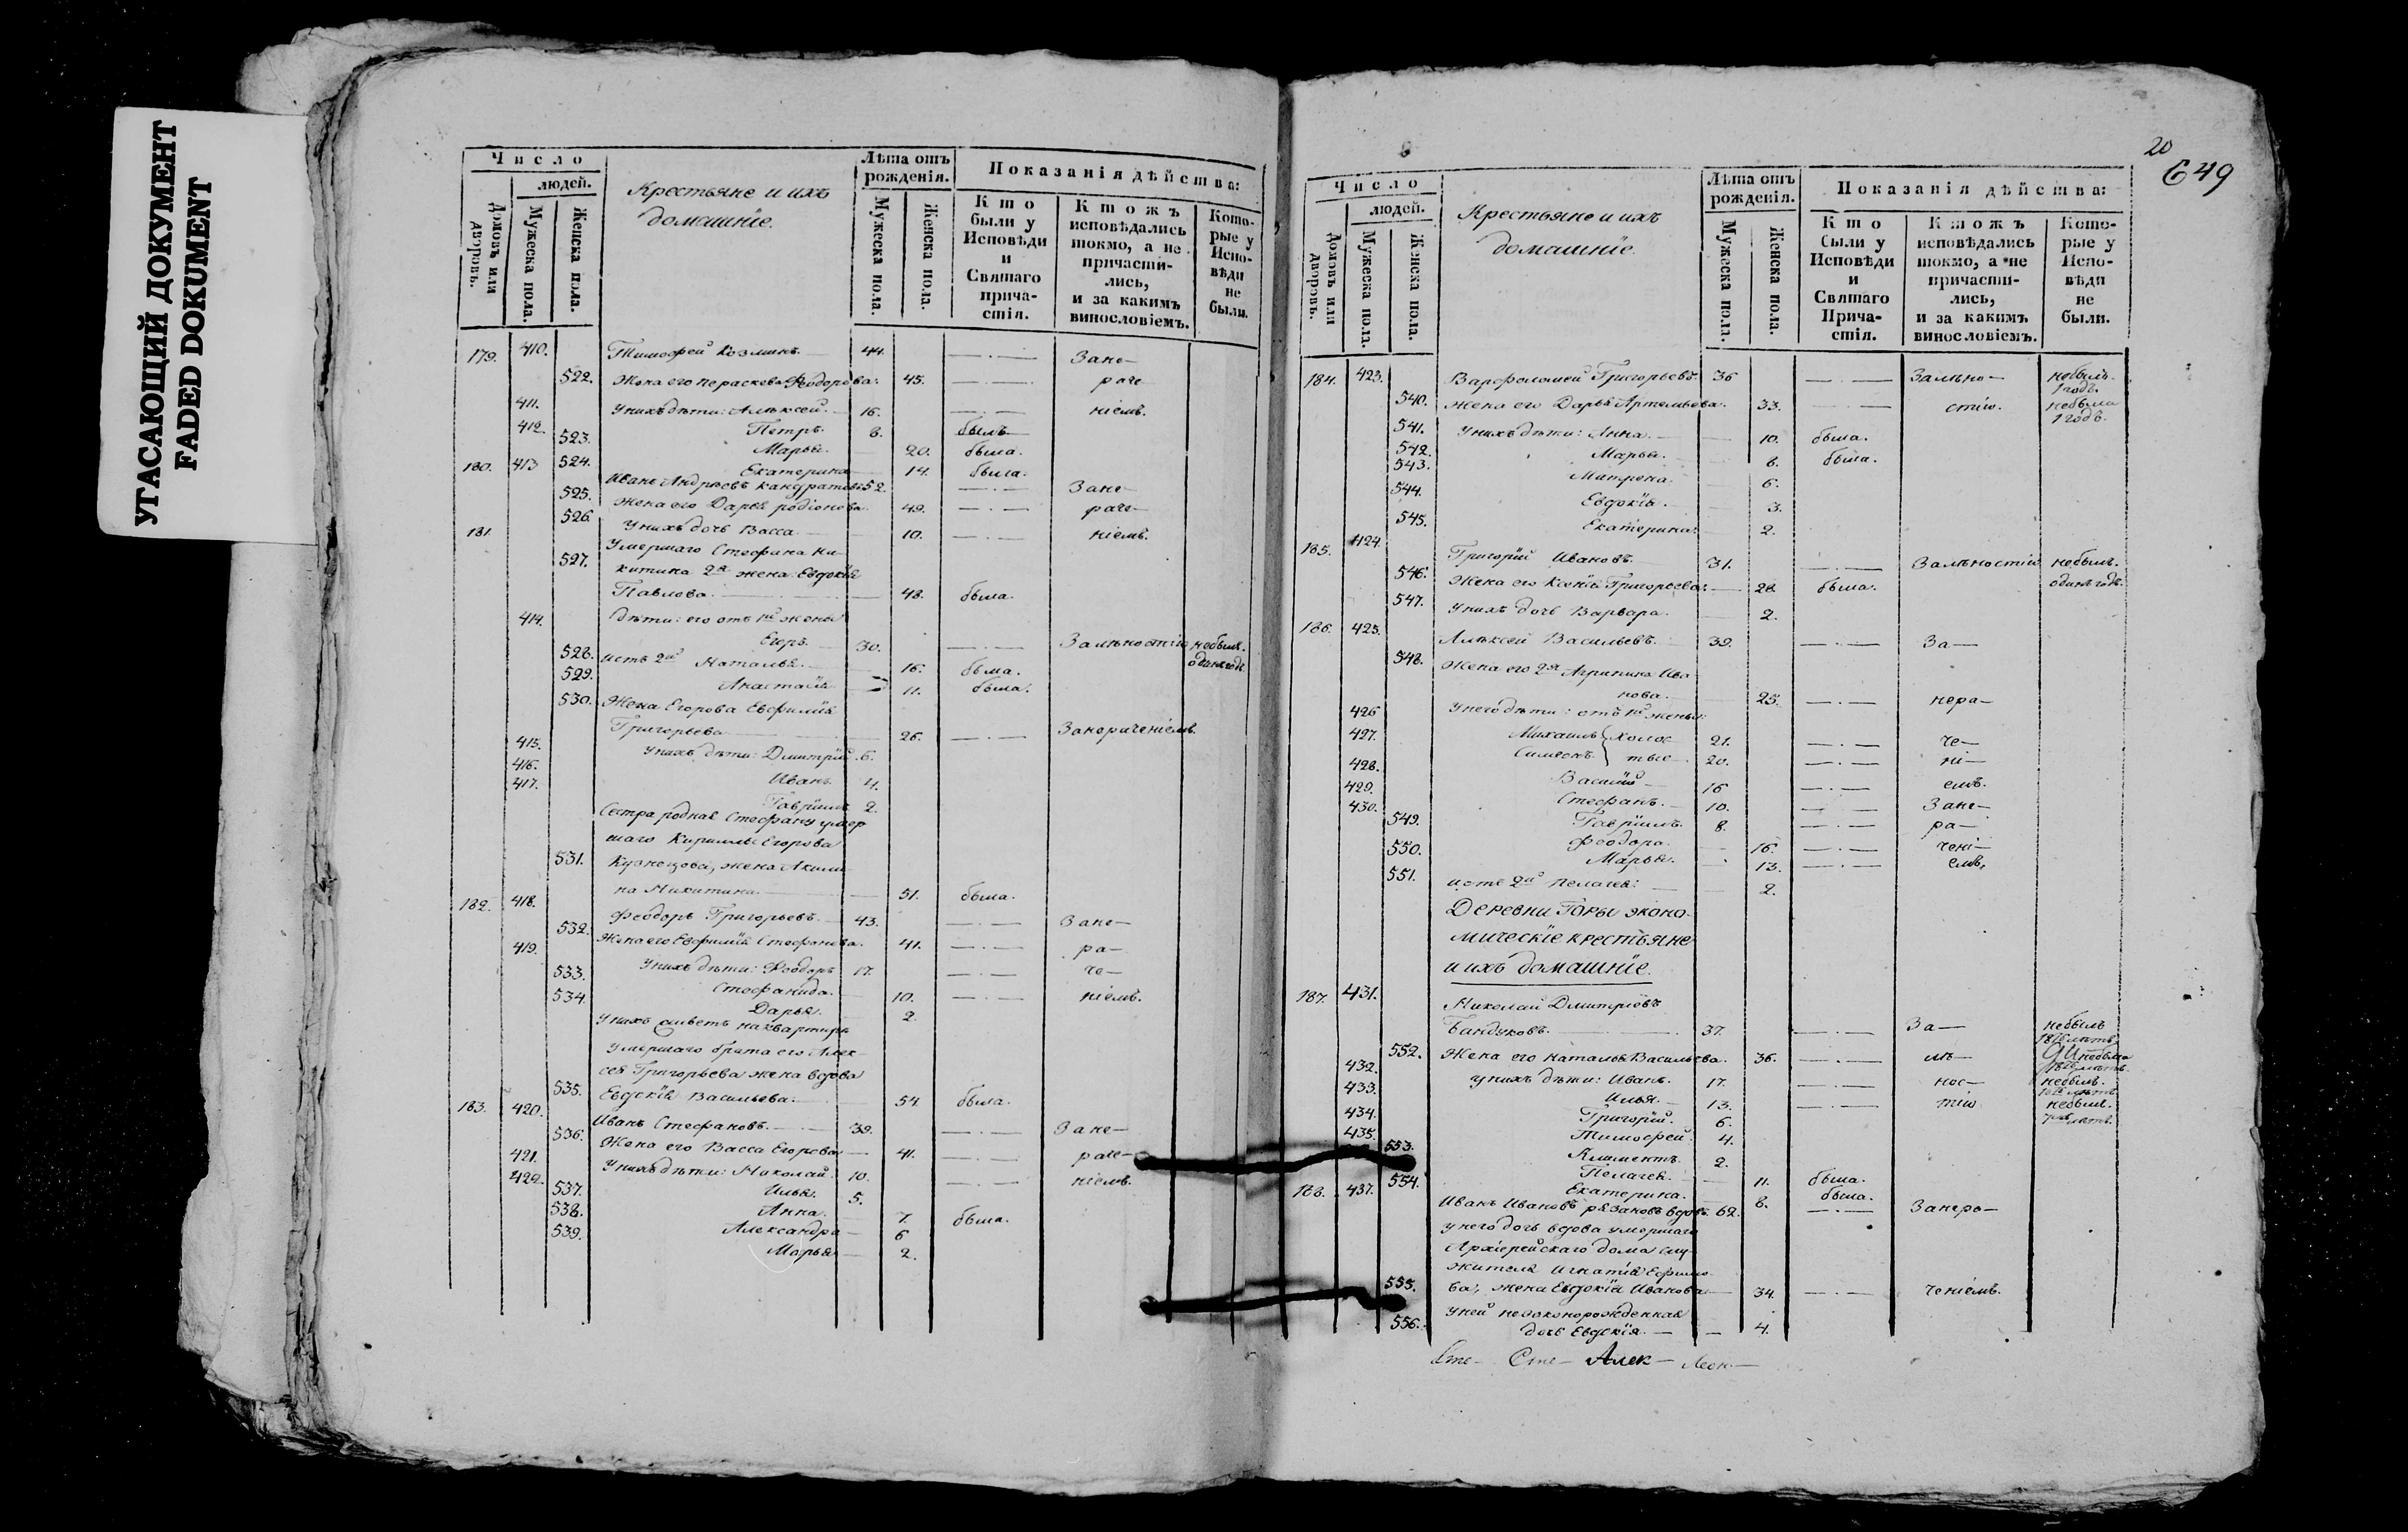 УГАСАЮЩИЙ ДОКУМЕНТ
FADED DOKUMENT
Число
людей.
Домовъ или дворовъ.
Мужеска пола.
Женска пола.
Крестьяне и ихъ
домашніе.
Лѣта отъ рожденія.
Мужеска пола.
Женска пола.
Показанія дѣйства:
Кто были у Исповѣди и Святаго причастія.
Ктожъ исповѣдались токмо, а не причастились, и за какимъ винословіемъ.
Которые у Исповѣди не были.
179. 410. Тимофей Козминъ. 44. Зане-
522. Жена его Параскева Феодорова: 45. раче
411. У нихъ дѣти: Алексей. 16. ніемъ.
412. Петръ. 8. былъ
523. Марья. 20. была.
524. Екатерина 14. была.
180. 413 Иванъ Андреевъ Кандратовъ 52. Зане-
525. Жена его Дарья Родіонова. 49. раче-
526. У нихъ дочь Васса. 10. ніемъ.
181. Умершаго Стефана Ни-
527. китина 2я жена Евдокія
Павлова. 48. была.
414. Дѣти: его отъ 1й жены
Егоръ. 30. Залѣностію небылъ.
528. и отъ 2й Наталья. 16. была. одинъ годъ.
529. Анастасія 11. была.
530. Жена Егорова Евфимія
Григорьева 26. Занераченіемъ.
415. У нихъ дѣти: Дмитрій 6.
416. Иванъ 4.
417. Гавріилъ 2.
Сестра родная Стефану умер
шаго Кириллы Егорова
531. Кузнецова, жена Акили
на Никитина. 51. была.
182. 418. Феодоръ Григорьевъ. 43. Зане-
532. Жена его Евфимія Стефанова. 41. ра-
419. У нихъ дѣти: Феодоръ 17. че-
533. Стефанида. 10. ніемъ.
534. Дарья. 2.
У нихъ живетъ на квартирѣ
умершаго брата его Алек-
сея Григорьева жена вдова
535. Евдокія Васильева. 54. была.
183. 420. Иванъ Стефановъ. 39. Зане-
536. Жена его Васса Егорова 41. раче-
421. У нихъ дѣти: Николай. 10. ніемъ.
422. Илья. 5.
537. Анна. 7. была.
538. Александра 6
539. Марья 2.
20
649
Число
людей.
Домовъ или дворовъ.
Мужеска пола.
Женска пола.
Крестьяне и ихъ
домашніе.
Лѣта отъ рожденія.
Мужеска пола.
Женска пола.
Показанія дѣйства:
Кто были у Исповѣди и Святаго Причастія.
Ктожъ исповѣдались токмо, а не причастились, и за какимъ винословіемъ.
Которые у Исповѣди не были.
184. 423. Варфоломей Григорьевъ 36 Залѣно- небылъ. 1 годъ.
540. Жена его Дарья Артемьева. 33. стію. небыла 1 годъ.
541. У нихъ дѣти: Анна. 10. была.
542. Марья. 8. была.
543. Матрена. 6.
544. Евдокія. 3.
545. Екатерина. 2.
185. 424. Григорій Ивановъ. 31. Залѣностію небылъ.
546. Жена его Ксенія Григорьева: 28. была. одинъ годъ.
547. У нихъ дочь Варвара. 2.
186. 425. Алексей Васильевъ. 39. За-
548. Жена его 2я Агрипина Ива
нова. 25. нера-
У него дѣти: отъ 1й жены:
426 Михаилъ холос 21. че-
427. Симеонъ тые 20. ні-
428. Василій 16 емъ.
429. Стефанъ. 10. Зане-
430. Гавріилъ. 8. ра-
549. Феодора. 16. чені-
550. Марья. 13. емъ,
551. и отъ 2й Пелагея: 2.
Деревни Горы эконо-
мическіе крестьяне
и ихъ домашніе.
187. 431. Николай Дмитріевъ
Бандуковъ. 37. За- небылъ
552. Жена его Наталья Васильева. 36. лѣ- небыла
432. У нихъ дѣти: Иванъ. 17. нос- небылъ.
433. Илья. 13. тію небылъ.
434. Григорій. 6.
435. Тимофей. 4.
Климентъ. 2.
553. Пелагея. 11. была.
554. Екатерина. 8. была.
188. 437. Иванъ Ивановъ Рязановъ вдовъ. 62. Занера-
у него дочь вдова умершаго
Архіерейскаго дома слу-
жителя Игнатія Ефимо-
555. ва, жена Евдокія Иванова 34. ченіемъ.
у ней незаконорожденная
556. дочь Евдокія. 4.
Сте- Алек- Леон-